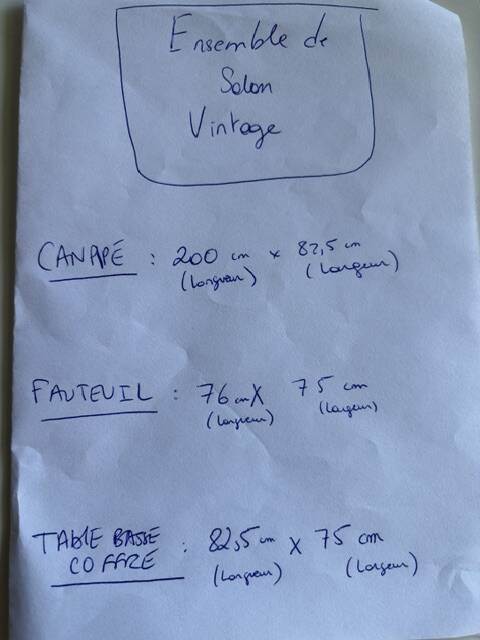 Ensemble de
Salon
Vintage
CANAPÉ : 200 cm x 82,5 cm
(Longueur) (Largeur)
FAUTEUIL : 76 cm X 75 cm
(Longueur) (Largeur)
TABLE BASSE
COFFRE : 82,5 cm X 75 cm
(Longueur) (Largeur)